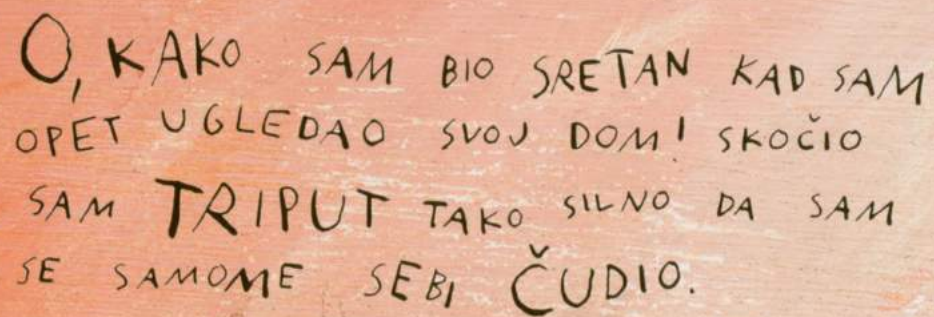 O, KAKO SAM BIO SRETAN KAD SAM
OPET UGLEDAO SVOJ DOM! SKOČIO
SAM TRIPUT TAKO SILNO DA SAM
SE SAMOME SEBI ČUDIO.